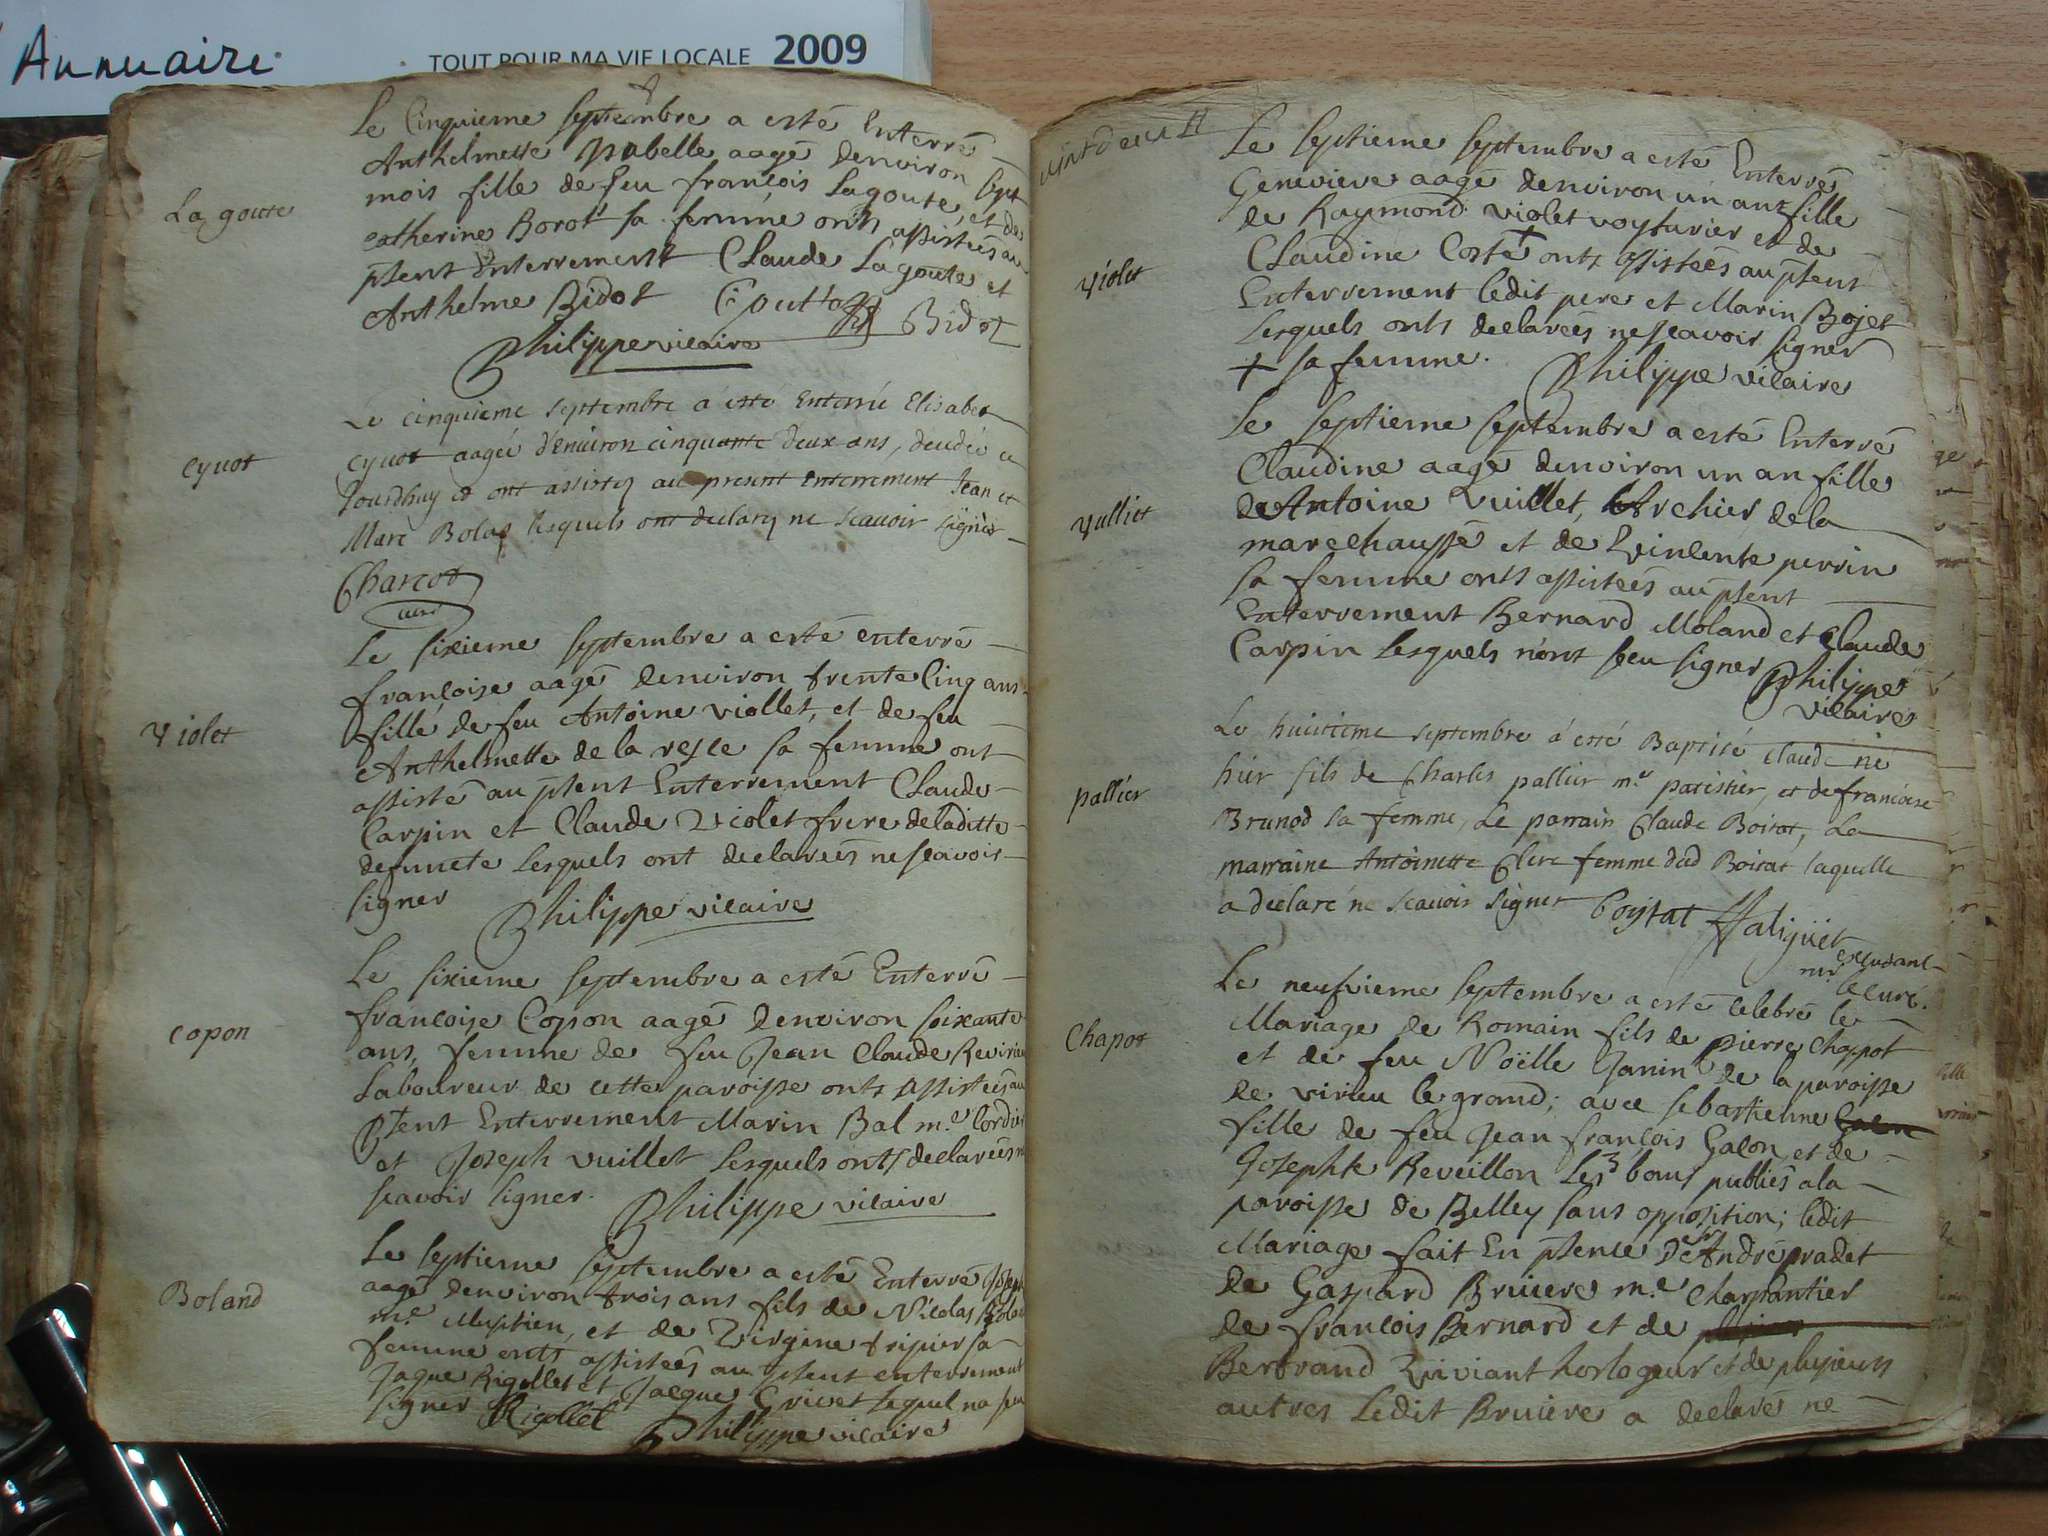 Annuaire
TOUT POUR MA VIE LOCALE 2009
Le Cinquieme septembre a esté Enterré
Anthelmette Ysabelle aagé denviron sept
mois fille de feu françois Lagoute, et de
Catherine Borot sa femme onts assistées au
pñent Enterrement Claude Lagoute et
Anthelme Bidot Goutte Bidot
Philippe vicaire
La goute
Le cinquieme septembre á esté Enterrée Elisabet
cyuot aagée d'Environ cinquante deux ans, decedée ce
Jourdhuy et ont assistez au present enterrement Jean et
Marc Bolaz lesquels ont declarez ne scavoir signer
Charcot
curé
cyuot
Le sixieme septembre a esté enterré
françoise aagé denviron trente Cinq ans
fille de feu Antoine viollet, et de feu
Anthelmette de la sa femme ont
assisté au pñent Enterrement Claude
Carpin et Claude Violet frere deladitte
defuncte Lesquels ont declarées ne scavoir
signer Philippe vicaire
Violet
Le sixieme septembre a esté Enterré
francoise Copon aagé denviron soixante
ans, femme de feu Jean Claude
Laboureur de cette paroisse onts assistées au
Pñent Enterrement Marin Bal m.e Cordier
et Joseph vuillet Lesquels onts declarées ne
scavoir signer. Philippe vicaire
copon
Le septieme septembre a esté Enterré Joseph
aagé denviron trois ans fils de Nicolas Bolan
m.e et de Virgine tripier sa
femme onts assistées au pñent enterrement
Jaque Rigollet et Jacque Grivet lequel na sceu
signer Rigollet Philippe vicaire
Boland
vint deux
Le septieme septembre a esté Enterrés
Genevieve aagé denviron un ans fille
de Raymond violet voyturier et de
Claudine Coste + onts assistées au pñent
Enterrement ledit pere et Marin Bojet
Lesquels onts declarées ne scavoir signer
+ sa femme. Philippe vicaire
Violet
Le septieme septembre a esté Enterré
Claudine aagé denviron un an fille
de Antoine Vuillet, Archier dela
marechaussé et de Vinlente perrin
sa femme onts assistées au pñent
Enterrement Bernard Moland et Claude
Carpin Lesquels n'ont sceu signer Philippe
vicaire
Vulliet
Le huictieme septembre á esté Baptisé claude né
hier fils de Charles pallier m.e patissier, et de francoise
Brunod sa femme, Le parrain Claude Boisat, La
marraine Antoinette Clerc femme dud Boisat laquelle
a declaré ne scavoir signer Boysat
excusant
mr le curé.
pallier
Le neufvieme septembre a esté celebré le
Mariage de Romain fils de pierre Chappot
et de feu Noëlle Janin de la paroisse
de virieu le grand; avec sebastienne
fille de feu Jean françois Galon, et de
Josephte Reveillon Les 3 bans publiés a la
paroisse de Belley sans opposition; ledit
Mariage fait En pñence De sr André pradet
de Gaspard Bruiere m.e Charpantier
de francois Bernard et de
Bertrand Viviant horlogeur et de plusieurs
autres Ledit Bruiere a declaré ne
Chapot